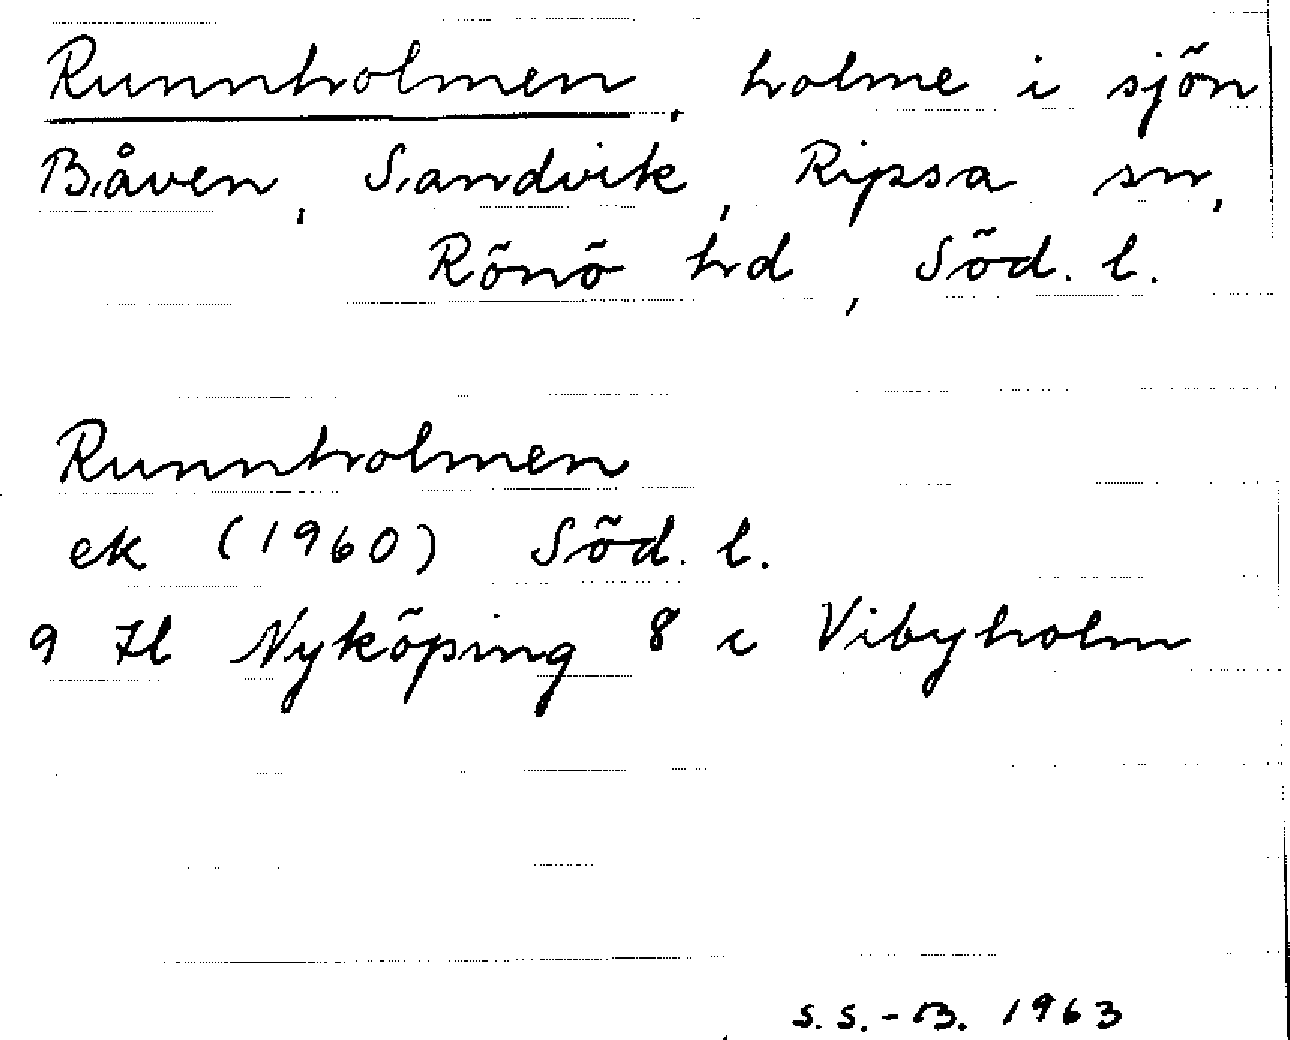 Runnholmen, holme i sjön
Båven, Sandvik, Ripsa sn,
Rönö hd, Söd. l.
Runnholmen
ek (1960) Söd. l.
9 Il Nyköping 8 c Vibyholm
S.S.-B. 1963